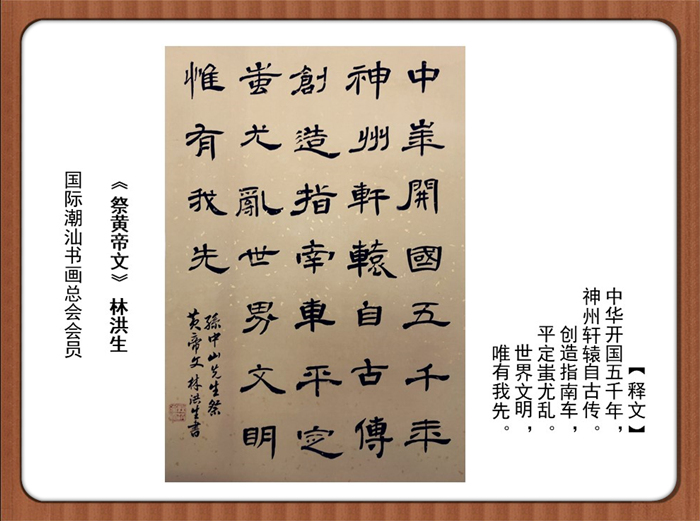 【释文】
中华开国五千年，
神州轩辕自古传。
创造指南车，
平定蚩尤乱。
世界文明，
唯有我先。
中華開國五千年
神州軒轅自古傳
創造指南車平定
蚩尤亂世界文明
惟有我先
孫中山先生祭
黄帝文 林洪生書
《祭黄帝文》 林洪生
国际潮汕书画总会会员